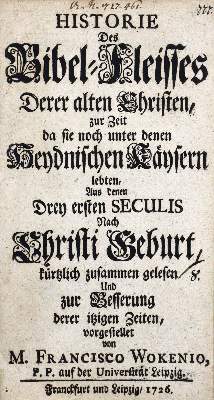 HISTORIE
Des
Bibel-Fleisses
Derer alten Christen,
zur Zeit
da sie noch unter denen
Heydnischen Käysern
lebten,
Aus denen
Drey ersten SECULIS
Nach
Christi Geburt,
kürtzlich zusammen gelesen
Und
zur Besserung
derer itzigen Zeiten,
vorgestellet
von
M. FRANCISCO WOKENIO,
P. P. auf der Universität Leipzig.
Franckfurt und Leipzig, 1726.